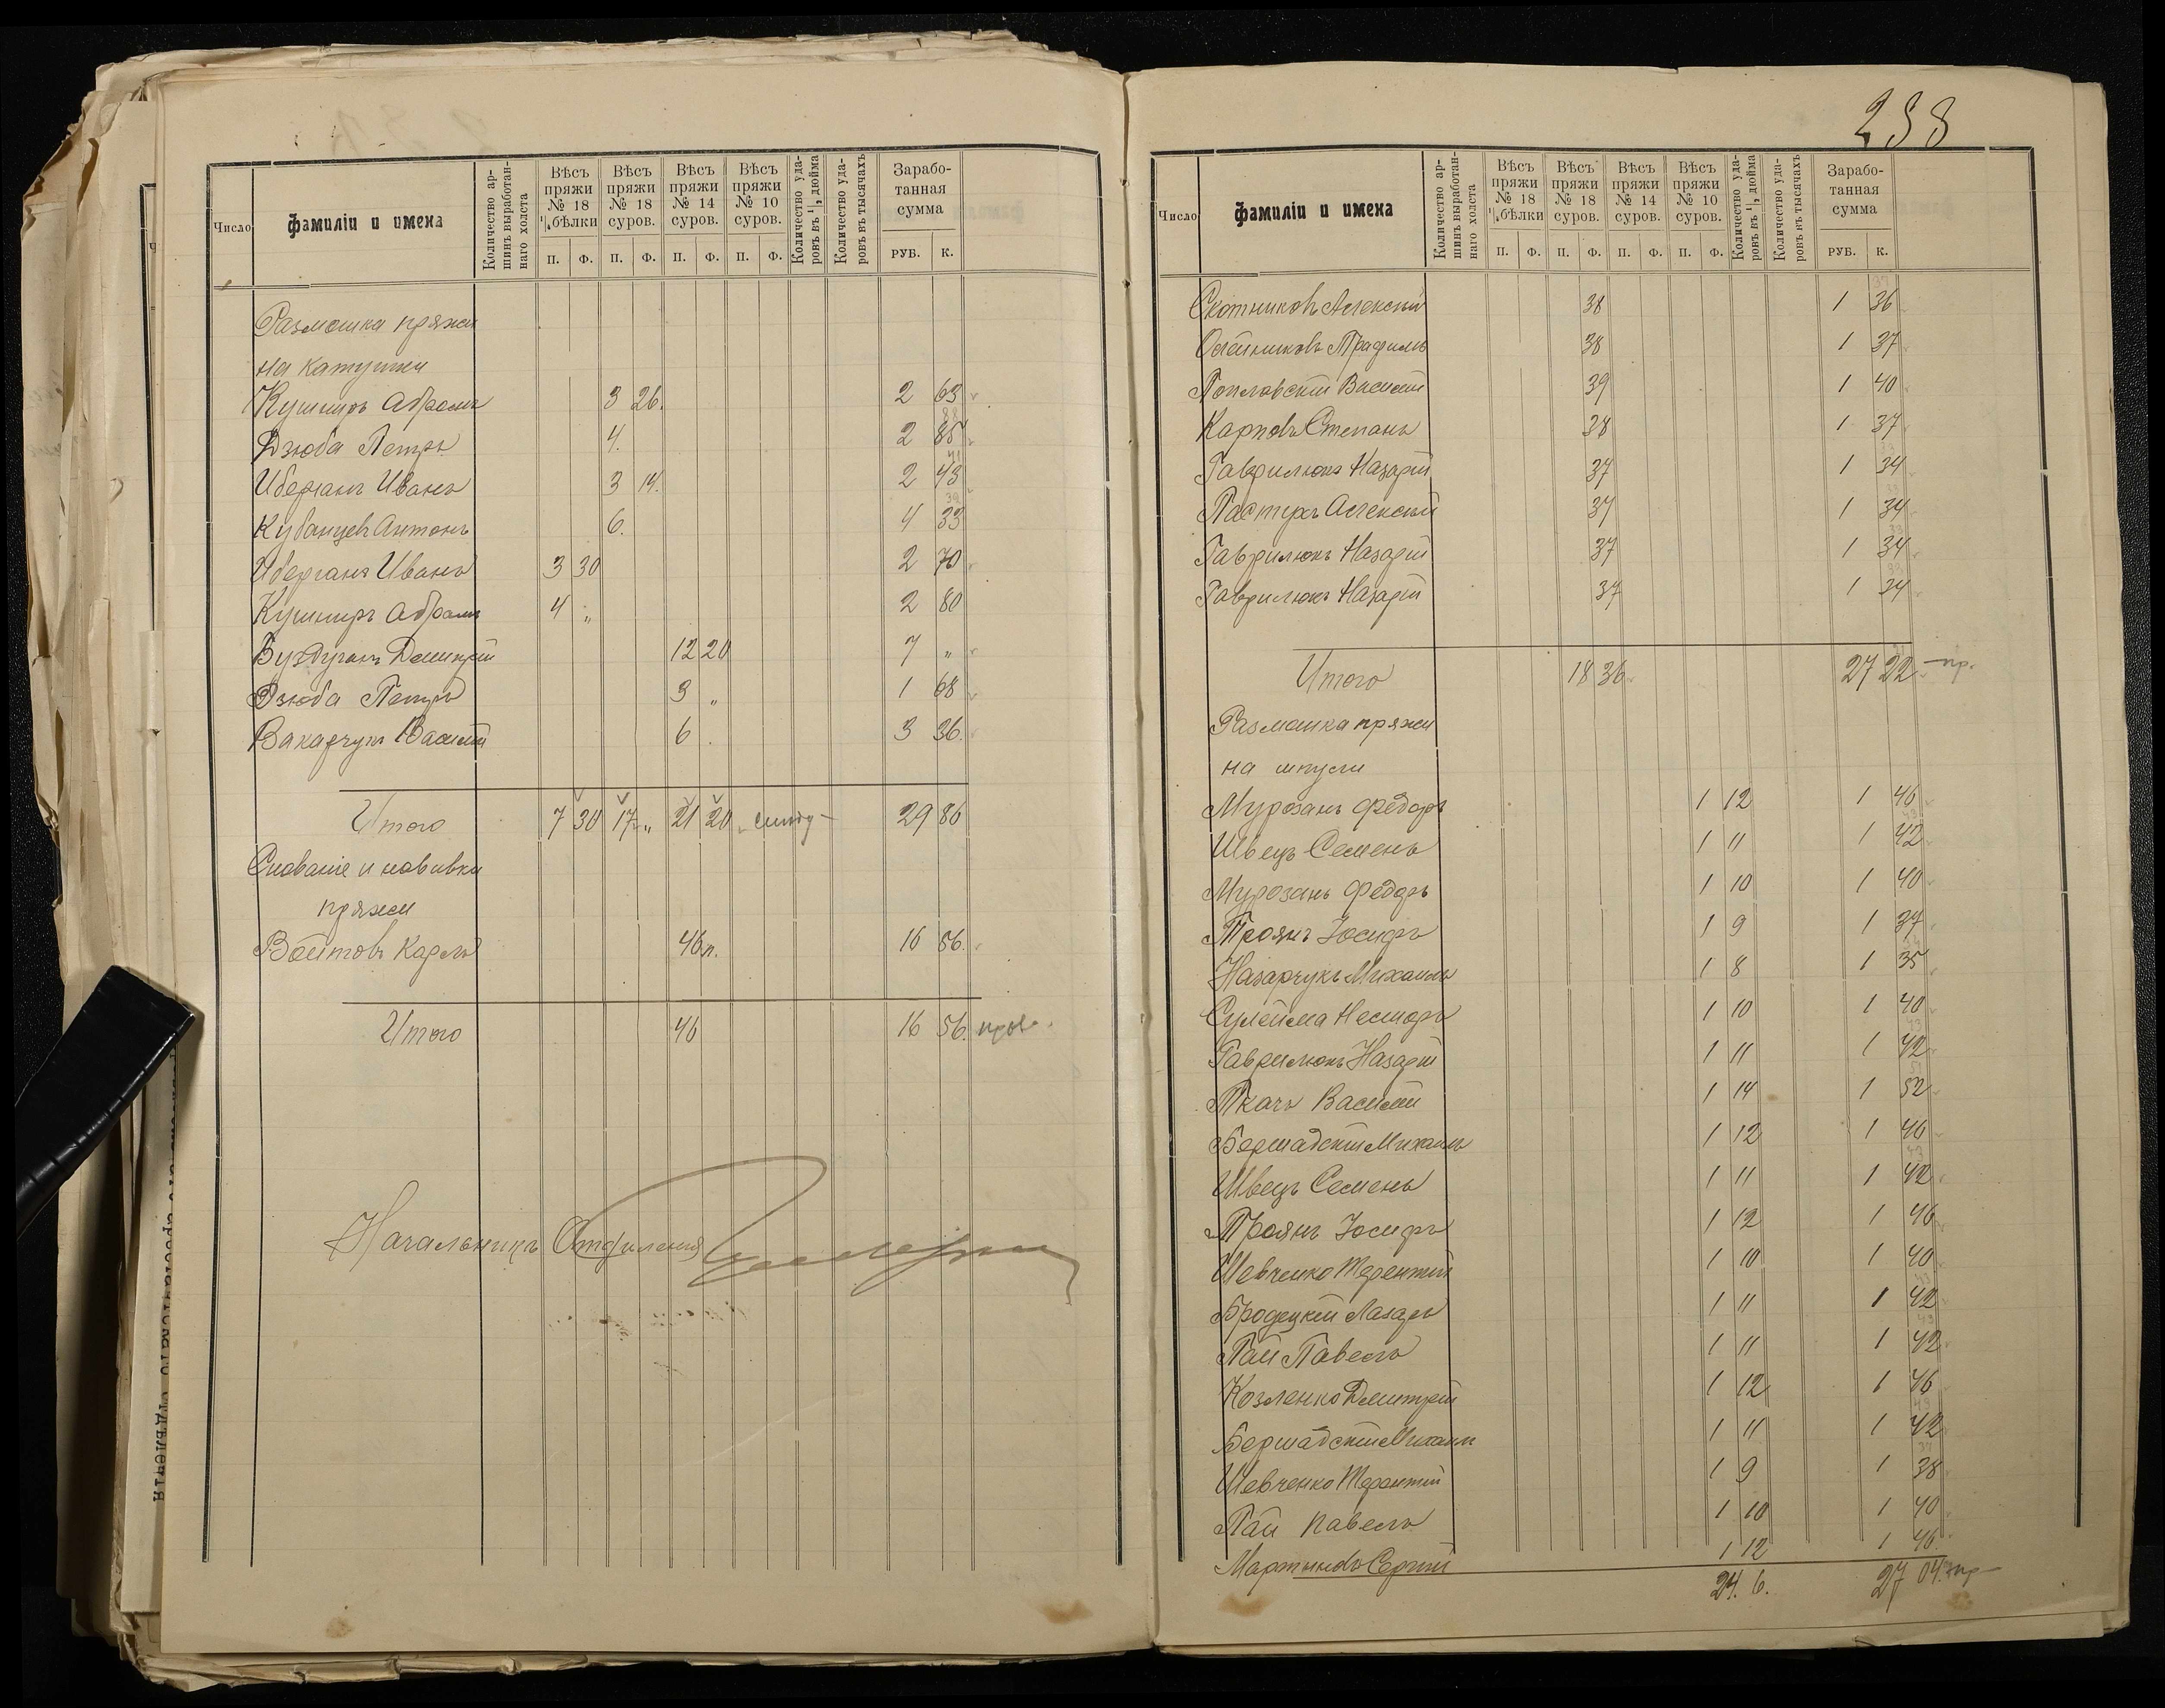 Число
Фамиліи и имена
Количество ар-
шинъ выработан-
наго холста
Вѣсъ пряжи № 18 ½бѣлки
Вѣсъ пряжи № 18 суров.
Вѣсъ пряжи № 14 суров.
Вѣсъ пряжи № 10 суров.
П. Ф. П. Ф. П. Ф. П. Ф.
Количество уда-
ровъ въ дюйма
Количество уда-
ровъ въ тысячахъ
Зарабо-
танная
сумма
РУБ. К.
Размотка пряжи
на катушки
Кушниръ Абрамъ 3 26. 2 63
Дзюба Петръ 4. 2 85
Иберганъ Иванъ 3 14. 2 43
Кубанцевъ Антонъ 6. 4 33
Иберганъ Иванъ 3 30 2 70
Кушниръ Абрамъ 4 „ 2 80
Буздуганъ Дмитрій 12 20 7 „
Дзюба Петръ 3 „ 1 68
Вакарчукъ Василій 6 3 36.
Итого 7 30 17 „ 21 20 29 86
Снованіе и навивка
пряжи
Войтовъ Карлъ 46 п. 16 56.
Итого 46 16 56. пров.
Начальникъ Отдѣленія
238
Число
Фамиліи и имена
Количество ар-
шинъ выработан-
наго холста
Вѣсъ пряжи № 18 ½бѣлки
Вѣсъ пряжи № 18 суров.
Вѣсъ пряжи № 14 суров.
Вѣсъ пряжи № 10 суров.
П. Ф. П. Ф. П. Ф. П. Ф.
Количество уда-
ровъ въ дюйма
Количество уда-
ровъ въ тысячахъ
Зарабо-
танная
сумма
РУБ. К.
Скотниковъ Алексѣй 38 1 36
Олейниковъ Трафимъ 38 1 37
Поплавскій Василій 39 1 40
Карповъ Степанъ 38 1 37
Гаврилюкъ Назарій 37 1 34
Пастухъ Алексѣй 37 1 34
Гаврилюкъ Назарій 37 1 34
Гаврилюкъ Назарій 37 1 34
Итого 18 36 27 22 пр.
Размотка пряжи
на шпули
Мурозанъ Федоръ 1 12 1 46
Швецъ Семенъ 1 11 1 42
Мурозанъ Федоръ 1 10 1 40
Троянъ Іосифъ 1 9 1 37
Назарчукъ Михаилъ 1 8 1 35
Сулейма Несторъ 1 10 1 40
Гаврилюкъ Назарій 1 11 1 42
Ткачъ Василій 1 14 1 52
Бершадскій Михаилъ 1 12 1 46
Швецъ Семенъ 1 11 1 42
Троянъ Іосифъ 1 12 1 46
Шевченко Терентій 1 10 1 40
Бродецкій Лазарь 1 11 1 42
Пай Павелъ 1 11 1 42
Козленко Дмитрій 1 12 1 46
Бершадскій Михаилъ 1 11 1 42
Шевченко Терентій 1 9 1 38
Пай Павелъ 1 10 1 40
Мартыновъ Сергій 1 12 1 46
24. 6. 27 04. пр